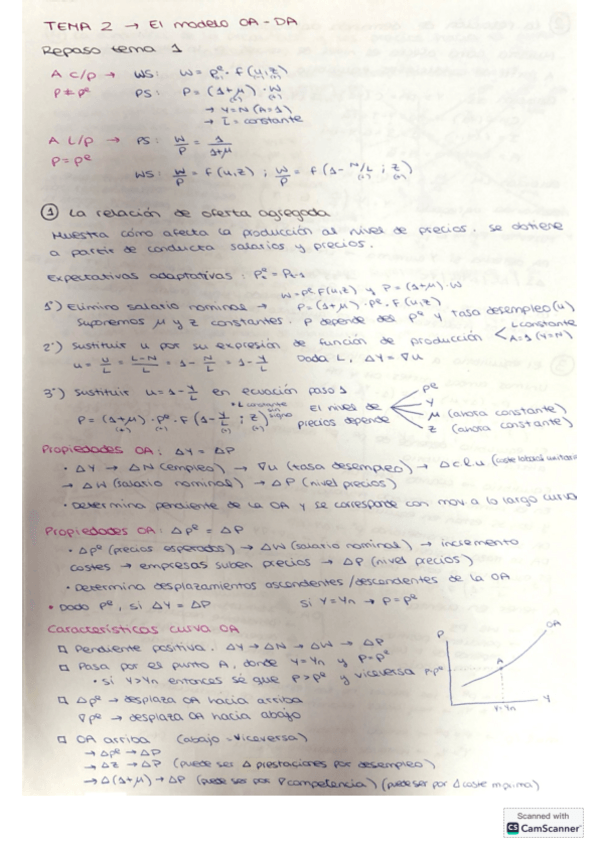 TEMA 2 → El modelo OA-DA
Repaso tema 1
A c/p → WS: W = Pᵉ · F(u,z)
P ≠ Pᵉ PS: P = (1+μ) · W
→ Y=N (A=1)
→ L = constante
A L/p → PS: W/P = 1/(1+μ)
P = Pᵉ
WS: W/P = F(u,z) ; W/P = F(1 - N/L ; z)
① La relación de oferta agregada
Muestra cómo afecta la producción al nivel de precios. Se obtiene
a partir de conducta salarios y precios.
Expectativas adaptativas: Pᵉₜ = Pₜ₋₁
W = Pᵉ·F(u,z) y P = (1+μ)·W
1º) Elimino salario nominal → P = (1+μ) · Pᵉ · F(u,z)
Suponemos μ y z constantes. P depende del Pᵉ y tasa desempleo (u)
2º) Sustituir u por su expresión de función de producción < L constante
A=1 (Y=N)
u = U/L = (L-N)/L = 1 - N/L = 1 - Y/L Dada L, ΔY = ∇u
3º) Sustituir u = 1 - Y/L en ecuación paso 1
P = (1+μ) · Pᵉ · F(1 - Y/L ; z) El nivel de precios depende
Pᵉ
Y
μ (ahora constante)
z (ahora constante)
Propiedades OA: ΔY = ΔP
· ΔY → ΔN (empleo) → ∇u (tasa desempleo) → Δclu (coste laboral unitario)
→ ΔW (salario nominal) → ΔP (nivel precios)
· Determina pendiente de la OA y se corresponde con mov a lo largo curva
Propiedades OA: ΔPᵉ = ΔP
· ΔPᵉ (precios esperados) → ΔW (salario nominal) → incremento
costes → empresas suben precios → ΔP (nivel precios)
· Determina desplazamientos ascendentes/descendentes de la OA
· Dado Pᵉ, si ΔY = ΔP si Y=Yn → P=Pᵉ
Características curva OA
□ Pendiente positiva. ΔY → ΔN → ΔW → ΔP
□ Pasa por el punto A, donde Y=Yn y P=Pᵉ
· si Y>Yn entonces sé que P>Pᵉ y viceversa
□ ΔPᵉ → desplaza OA hacia arriba
∇Pᵉ → desplaza OA hacia abajo
□ OA arriba (abajo = viceversa)
→ ΔPᵉ → ΔP
→ Δz → ΔP (puede ser Δ prestaciones por desempleo)
→ Δ(1+μ) → ΔP (puede ser por ∇ competencia) (puede ser por Δ coste m.prima)
P
OA
A
P=Pᵉ
Y=Yn
Y
Scanned with
CS CamScanner